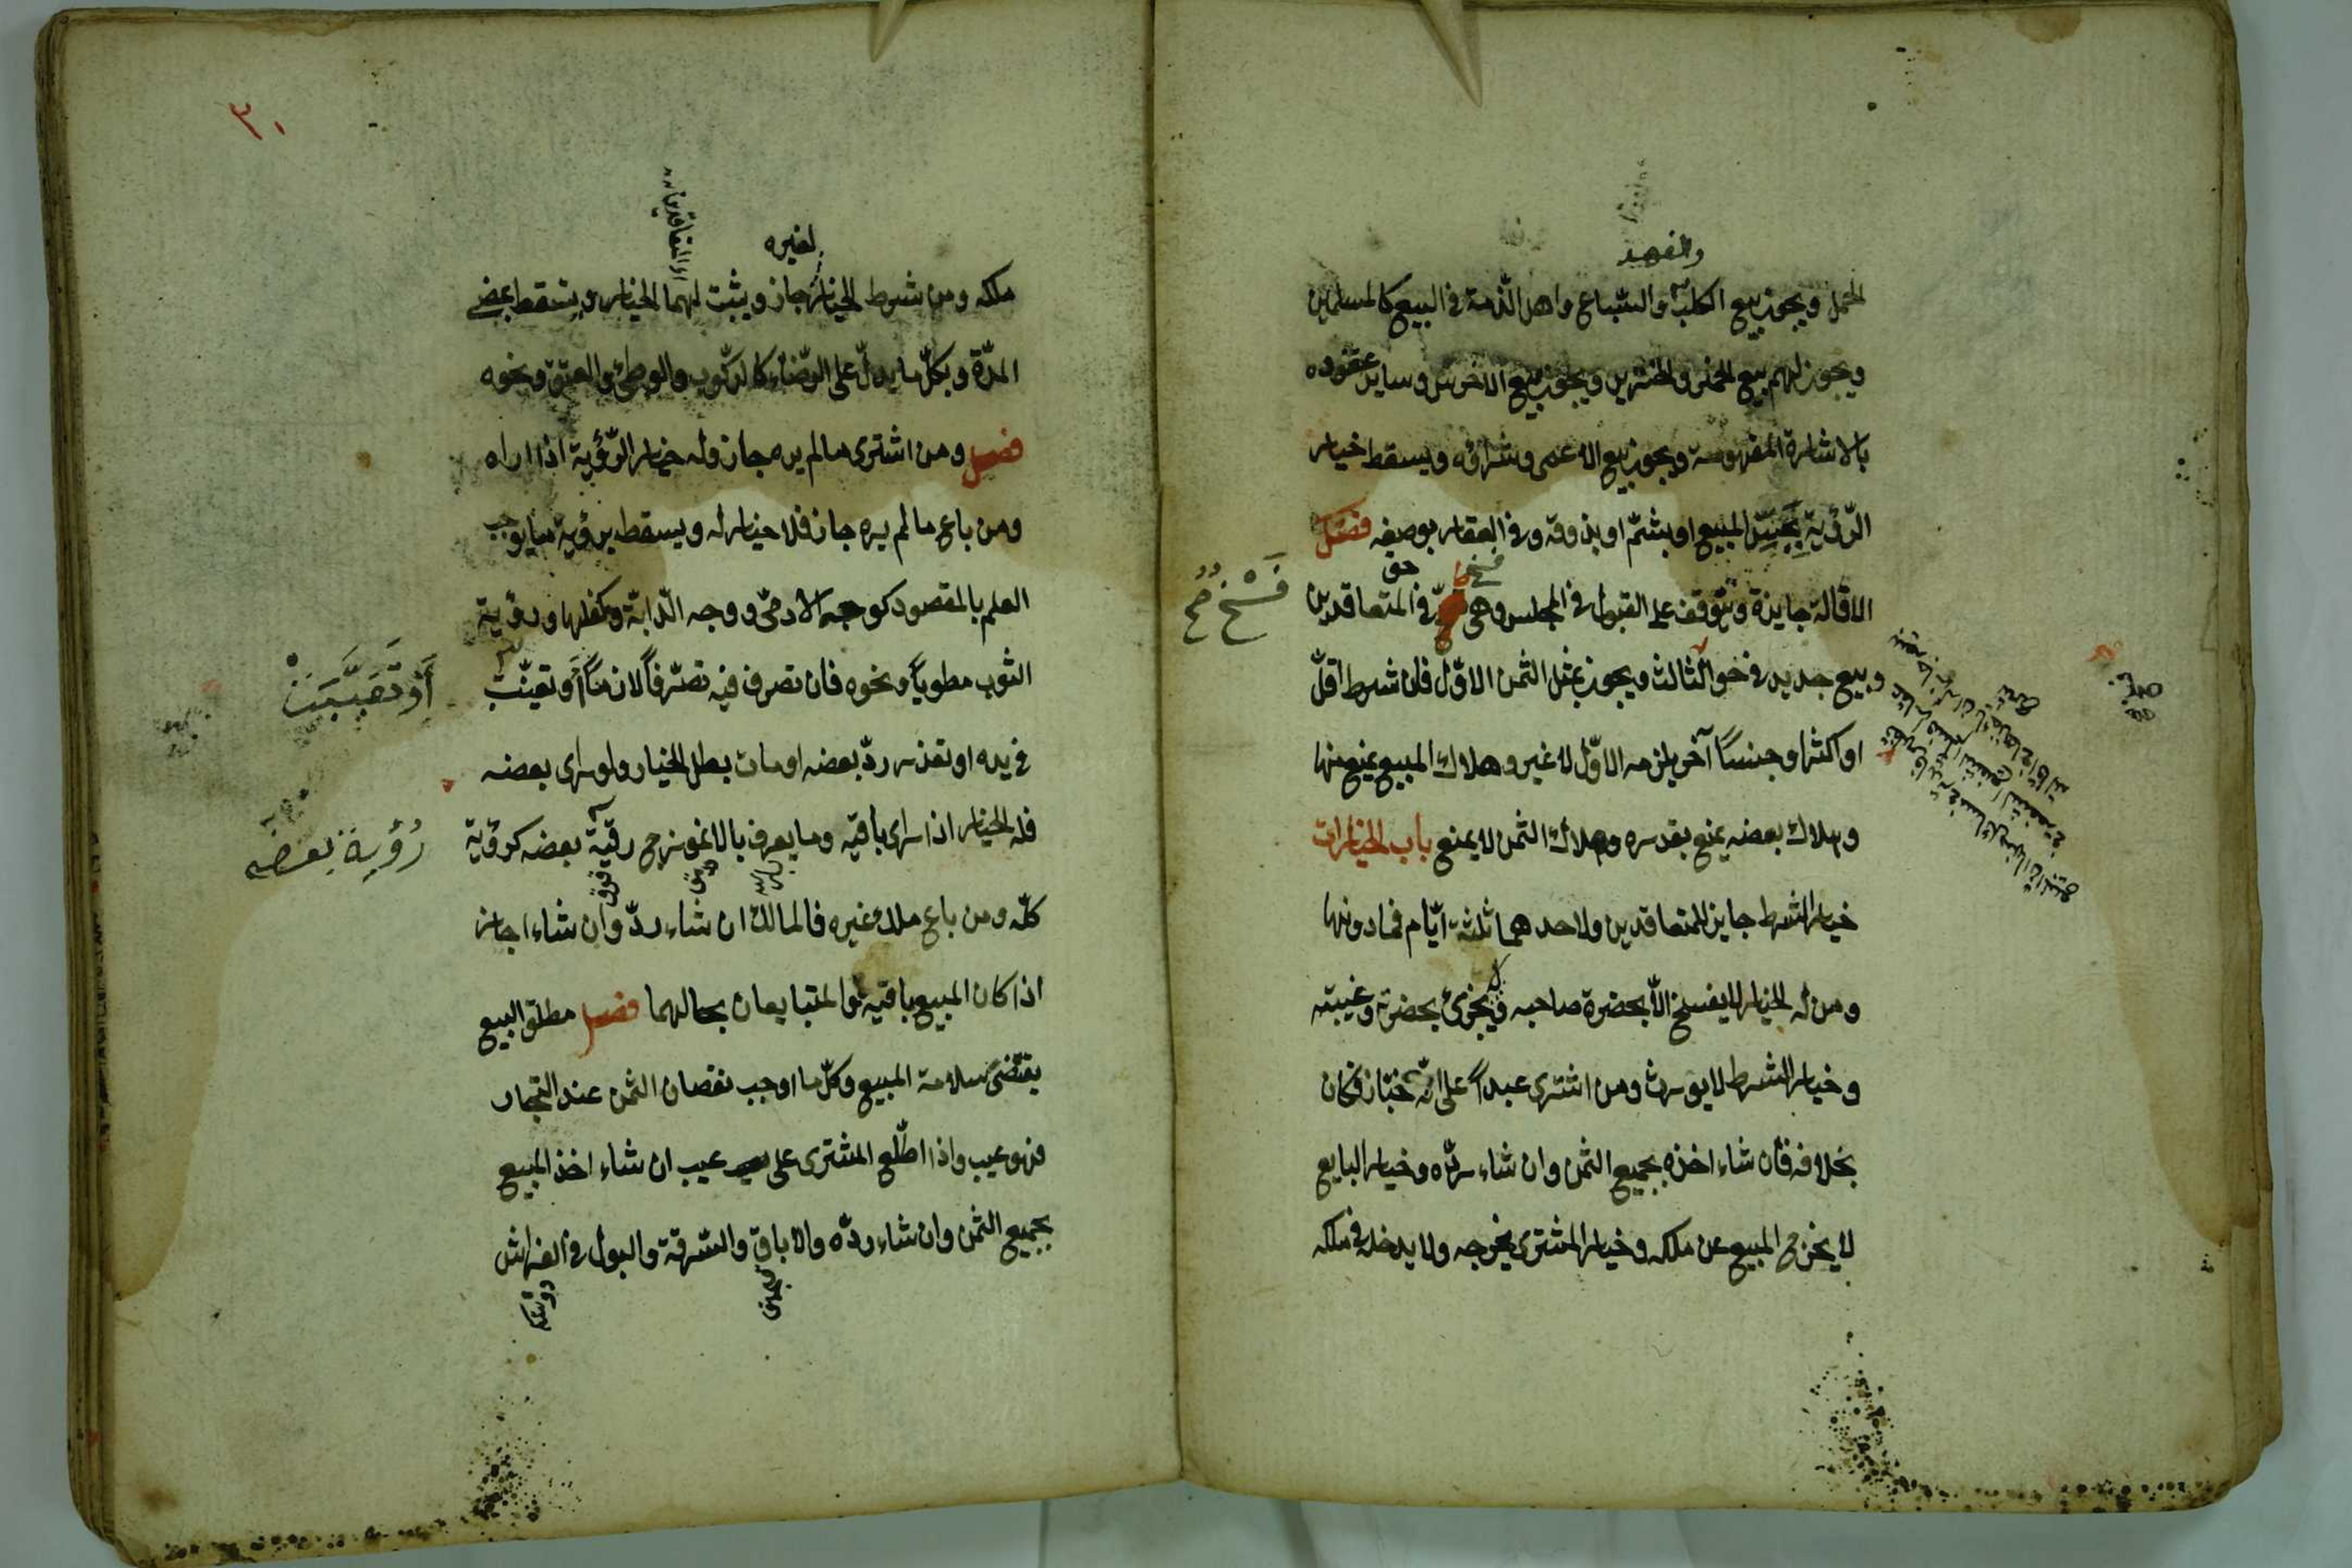 والفهد
الحمل ويجوز بيع الكلب والسباع واهل الذمة في البيع كالمسلمين
ويجوز لهم بيع الخمر والخنزير ويجوز بيع الاخرس وساير عقوده
بالاشارة المفهومة ويجوز بيع الاعمى وشراؤه ويسقط خيار
الرّؤية بجسّ المبيع او بشمّه او بذوقه وفي العقار بوصفه فصل
فسخ حق
الاقالة جايزة وتتوقف على القبول في المجلس وهي في المتعاقدين
فَسْخٌ صح
وبيع جديد في حق الثالث ويجوز بمثل الثمن الاوّل فان شرط اقلّ
او اكثر او جنسًا آخر يلزمه الاوّل لا غير وهلاك المبيع يمنع منها
وهلاك بعضه يمنع بقدره وهلاك الثمن لا يمنع باب الخيارات
خيار الشرط جايز للمتعاقدين ولاحدهما ثلثة ايّام فمادونها
ومن له الخيار لا يفسخ الّا بحضرة صاحبه ويجيز بحضرته وغيبته
وخيار الشرط لا يورث ومن اشترى عبداً على انّه خبّاز فكان
بخلافه فان شاء اخذه بجميع الثمن وان شاء ردّه وخيار البايع
لا يخرج المبيع عن ملكه وخيار المشترى يخرجه ولا يدخله في ملكه
٣٠
لغيره
اى المتعاقدين
ملكه ومن شرط الخيار جاز ويثبت لهما الخيار ويسقط بمضي
المدّة وبكلّ ما يدلّ على الرّضاء كالركوب والوطئ والعتق ونحوه
فصل ومن اشترى مالم يره جاز وله خيار الرّؤية اذا راه
ومن باع مالم يره جاز فلا خيار له ويسقط برؤية ما يوجب
العلم بالمقصود كوجه الادمّى ووجه الدّابّة وكفلها ورؤية
الثوب مطويّاً ونحوه فان تصرف فيه تصرّفاً لازماً او تعيّبت
أَوْ تَعَيَّبَتْ
في يده او تعذر ردّ بعضه او مات بطل الخيار ولو راى بعضه
فله الخيار اذا راى باقيه وما يعرف بالانموزج رؤية بعضه كرؤية
رُؤْيَة بعضه
كلّه ومن باع ملك غيره فالمالك ان شاء ردّ وان شاء اجاز
اذا كان المبيع باقيه والمتبايعان بحالهما فصل مطلق البيع
يقتضى سلامة المبيع وكلّ ما اوجب نقصان الثمن عند التجار
فهو عيب واذا اطّلع المشترى على عيب ان شاء اخذ المبيع
بجميع الثمن وان شاء ردّه والاباق والسّرقة والبول في الفراش